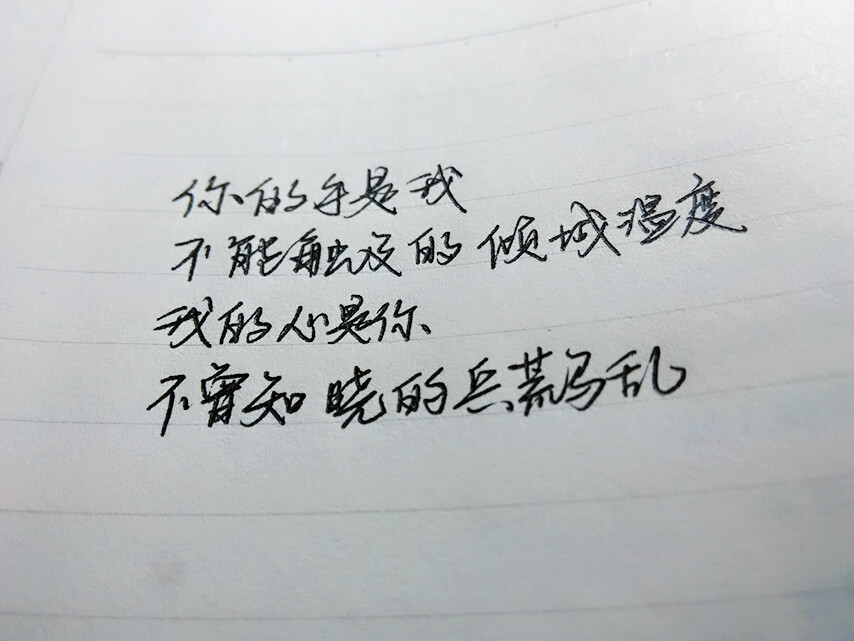 你的手是我
不能触及的倾城温度
我的心是你
不曾知晓的兵荒马乱